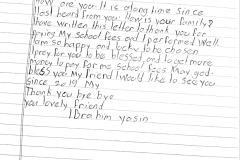 How are you. It is a long time since
last heard from you. How is your family?
I have written this letter to thank you for
paying My School fees and I performed well.
I am so happy and lucky to be chosen
I pray for you to be blessed, and to get more
money to pay for me School fees May god-
bless you My friend I would like to see you
since 2019 My
Thank you bye bye
your lovely friend
IBrahim yasin